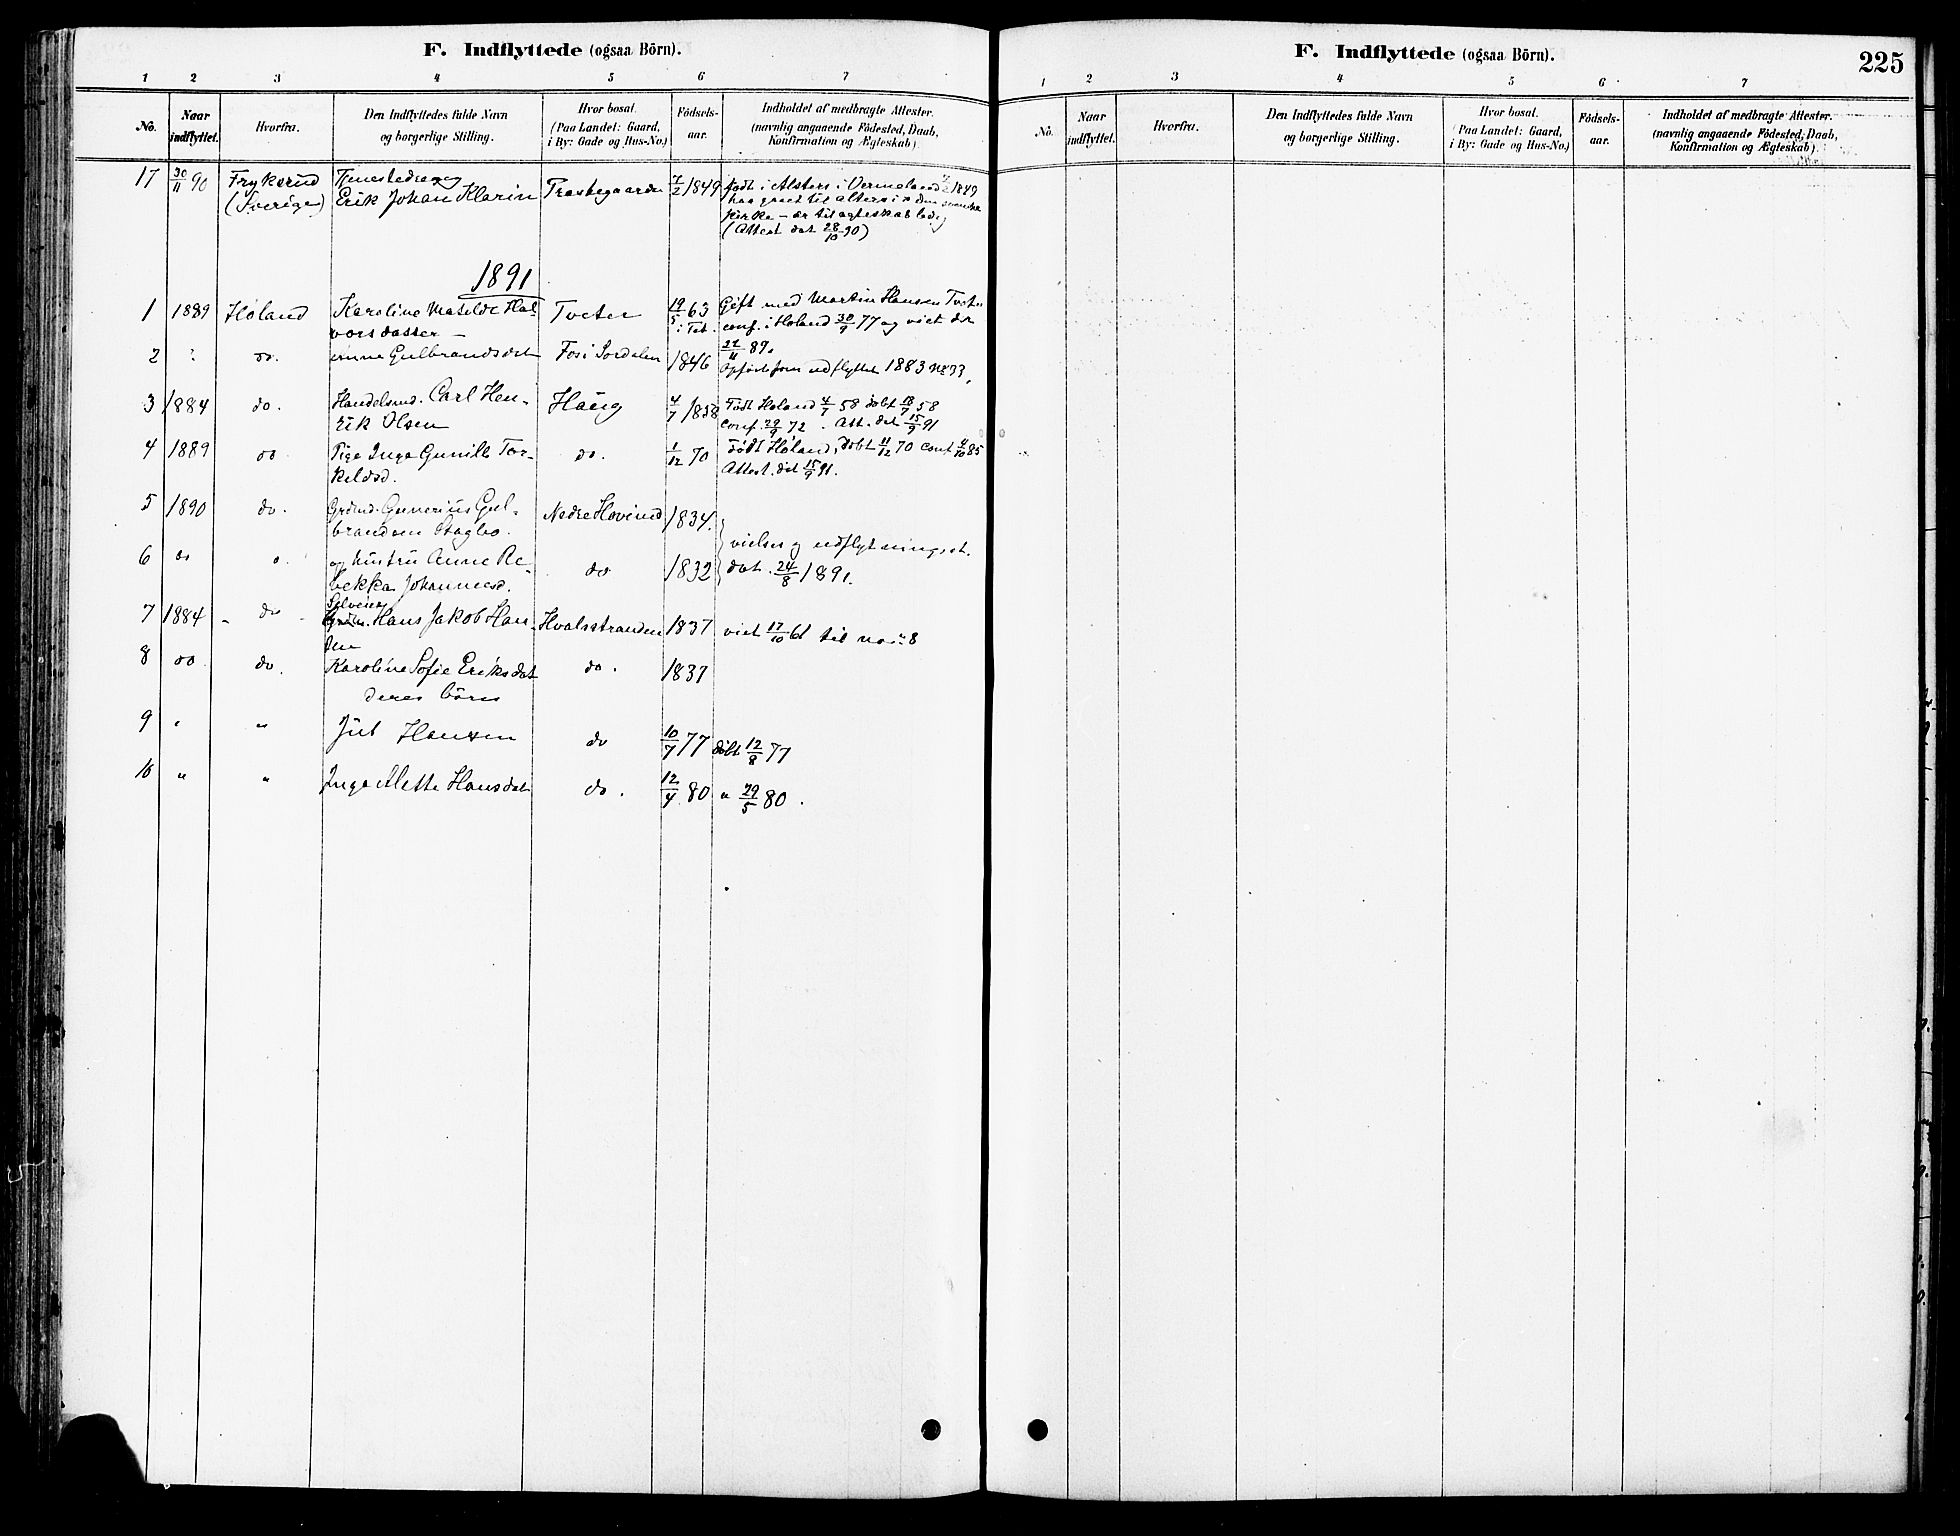 F. Indflyttede (ogsaa Börn).
1 2 3 4 5 6 7
No. Naar indflyttet. Hvorfra. Den Indflyttedes fulde Navn og borgerlige Stilling. Hvor bosat. (Paa Landet: Gaard, i By: Gade og Hus-No.) Födsels-aar. Indholdet af medbragte Attester. (navnlig angaaende Födested, Daab, Konfirmation og Ægteskab)
17 30/11 90 Fryksrud Tjenestedreng 7/2 1849 født i Alsters i Vermeland 7/2 1849
(Sverige) Erik Johan Klarin Præstegaarden
har gaaet til alters i den svenske
kirke – er til ægteskab ledig
(Attest dat 28/10 90)
1891
1 1889 Høland Karoline Matilde Hal- Tveter 19/5 63 Gift med Martin Hansen Tveter
vorsdatter – conf. i Høland 30/9 77 og viet der
2 do. Anne Gulbrandsdat Fos i Sordalen 1846 22/11 89.
Opført som udflyttet 1883 No 33.
3 1884 do. Handelsmd. Carl Hen- Haug 4/7 1858 Født Høland 4/7 58 døbt 18/7 58
rik Olsen conf. 29/9 72. Att. dat 15/9 91
4 1889 do Pige Inga Gunille Tor- do. 1/12 70 Født Høland, døbt 11/12 70 conf 4/10 85
keldsd. Attest. dat 15/9 91.
5 1890 do. Grdmd. Gunerius Gul- Nedre Hovind 1834.
brandsen Stagbo. vielses og udflytningsat.
6 do og hustru Anne Re- do 1832 dat. 24/8 1891.
bekka Johannesd.
7 1884 do Selveier Hans Jakob Han- Hvalsstranden 1837 viet 17/10 61 til no 8
sen
8 do do. Karoline Sofie Eriksdat do. 1837
deres börn
9 " " Jul Hansen do 10/7 77 døbt 12/8 77
10 " " Inga Alette Hansdat do. 12/4 80 " 29/5 80.
F. Indflyttede (ogsaa Börn).
225
1 2 3 4 5 6 7
No. Naar indflyttet. Hvorfra. Den Indflyttedes fulde Navn og borgerlige Stilling. Hvor bosat. (Paa Landet: Gaard, i By: Gade og Hus-No.) Födsels-aar. Indholdet af medbragte Attester. (navnlig angaaende Födested, Daab, Konfirmation og Ægteskab)